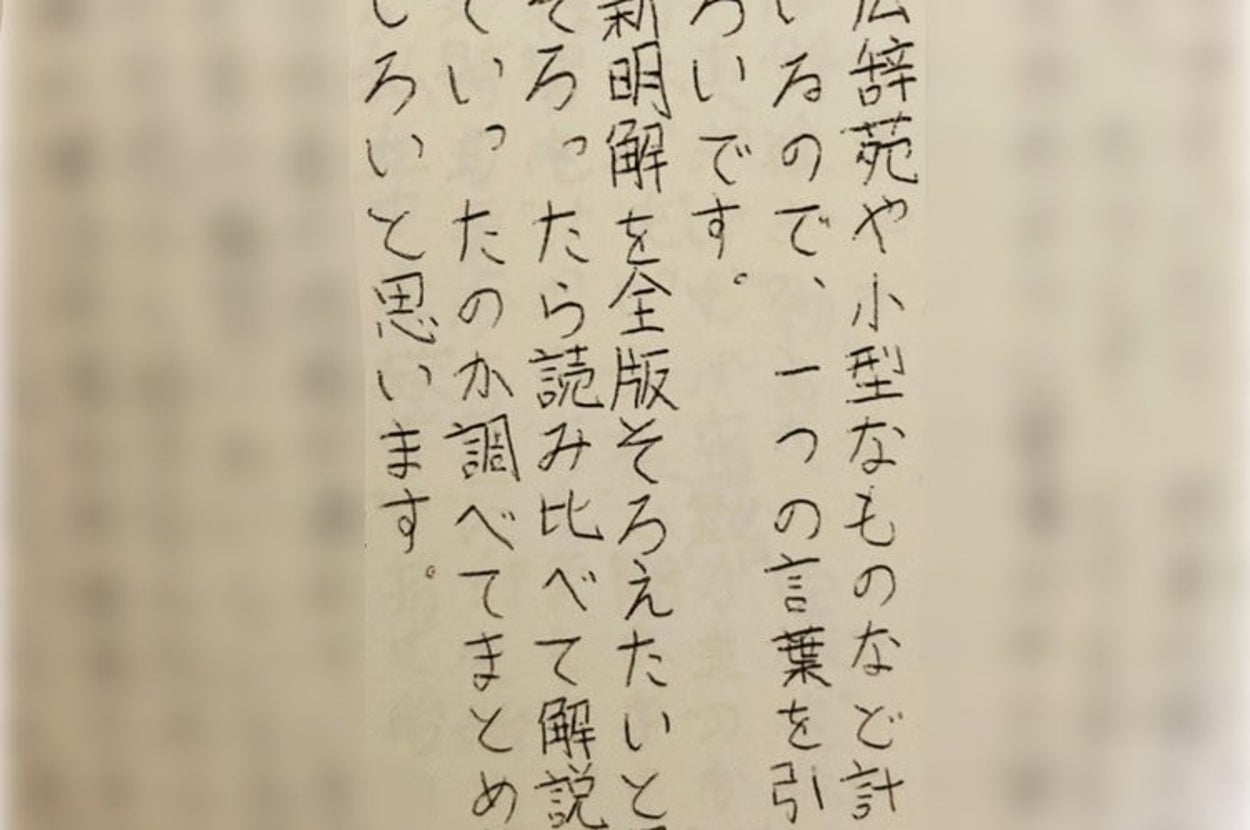 広辞苑や小型なものなど計
いるので、一つの言葉を引
ろいです。
新明解を全版そろえたいと
そろったら読み比べて解説
ていったのか調べてまとめ
しろいと思います。